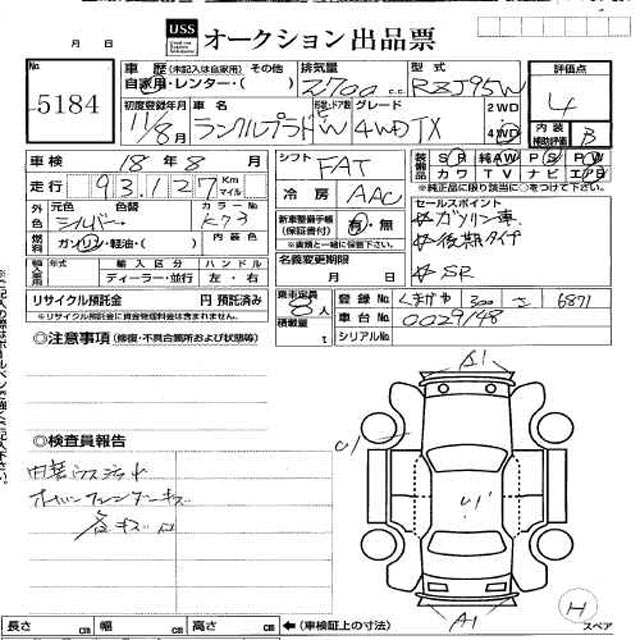 USS オークション 出品票
月 日
No 5184
車歴 (未記入は自家用) その他
自家用・レンター・( )
排気量 2700 c.c.
型式 RZJ95W
評価点 4
内装補助評価 B
初度登録年月 11/8月
車名 ランクルプラド
形状・ドア数 W
グレード 4WD TX
2WD
4WD
車検 18年 8月
走行 93,127 Km マイル
シフト FAT
冷房 AAC
装備品 SR 純AW PS PW
カワ TV ナビ エアB
*純正品に限り該当に○をつけて下さい。
外色 元色 シルバー 色替 カラーNo K73
燃料 ガソリン・軽油・( ) 内装色
輸入車用 年式 輸入区分 ハンドル
ディーラー・並行 左・右
新車整備手帳(保証書付) 有・無
*書類と一緒に保管下さい。
名義変更期限
月 日
セールスポイント
☆ガソリン車
☆後期タイプ
☆SR
リサイクル預託金 円 預託済み
※リサイクル預託金に資金管理料金は含まれません。
乗車定員 8人
積載量 t
登録No くまがや 300 さ 6871
車台No 0029148
シリアルNo
◎注意事項 (修復・不具合箇所および状態等)
◎検査員報告
内装ウスヨゴレ
オーバーフェンダーキズ
各キズ凹
A1
U1
U1
A1
H
長さ cm 幅 cm 高さ cm ←(車検証上の寸法) スペア